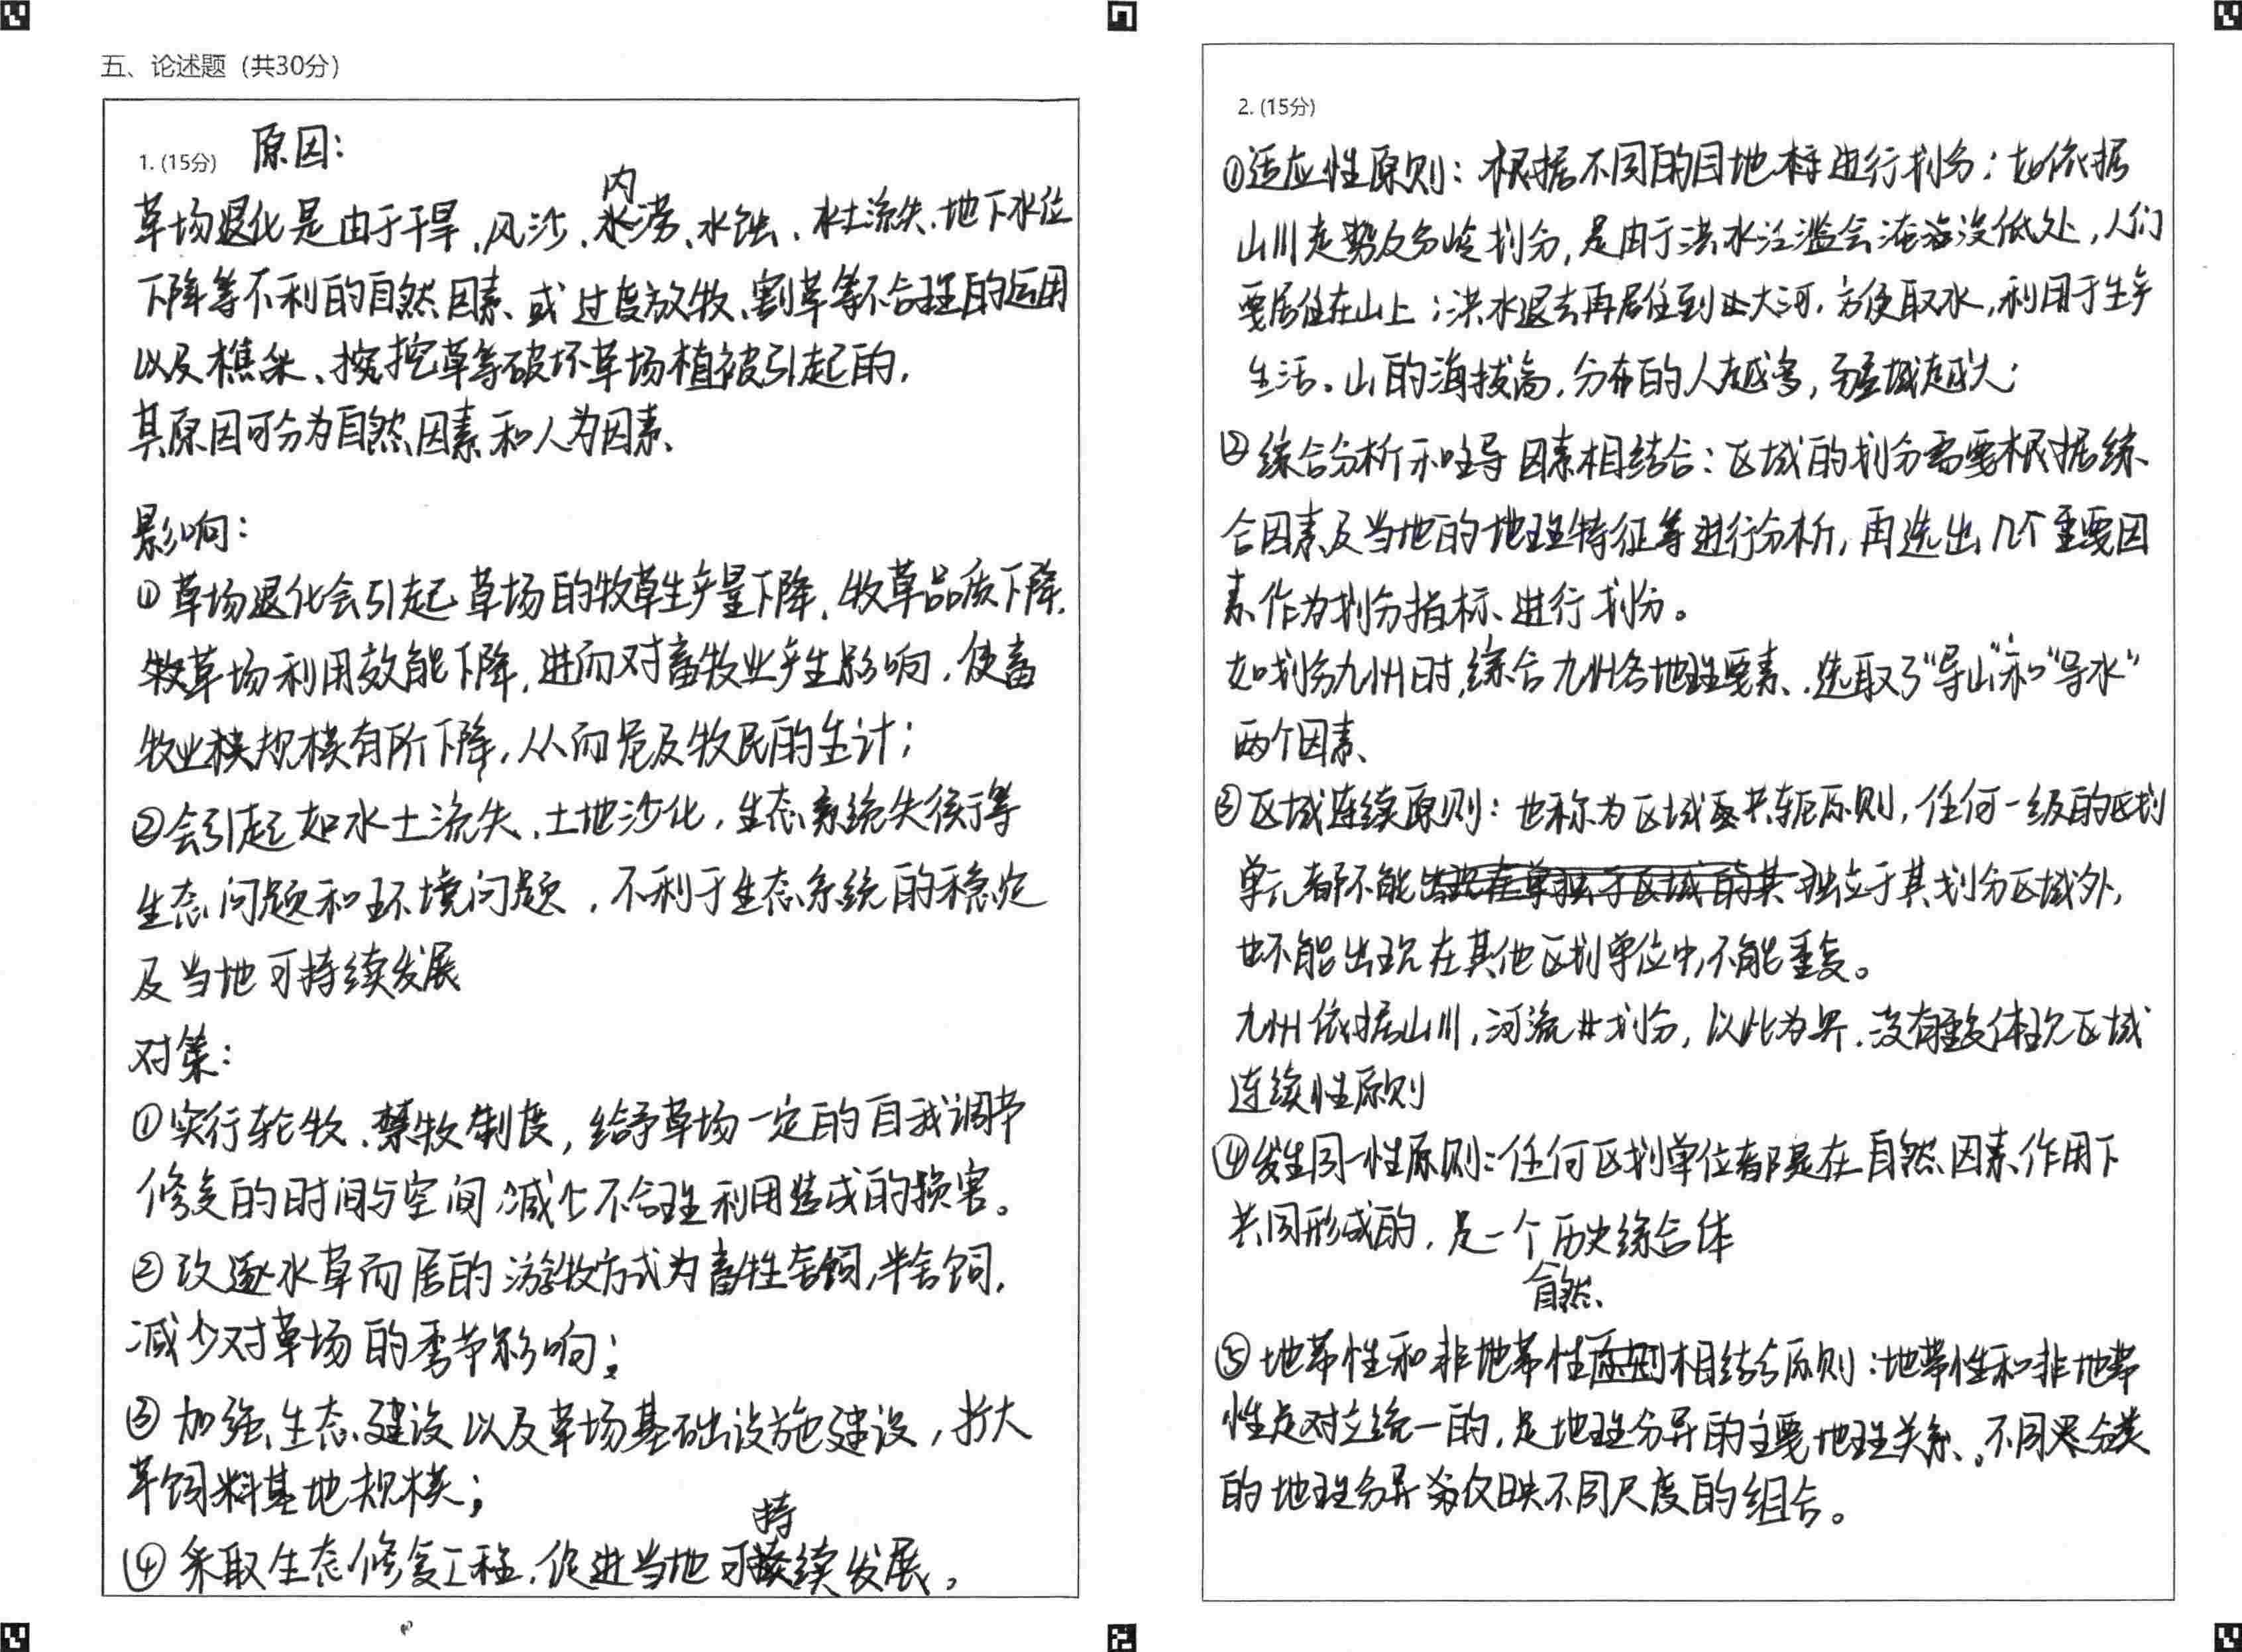 五、论述题（共30分）
1. (15分) 原因：
草场退化是由于干旱、风沙、内涝、水蚀、水土流失、地下水位
下降等不利的自然因素、或过度放牧、割草等不合理的运用
以及樵采、挖草等破坏草场植被引起的，
其原因可分为自然因素和人为因素、
影响：
①草场退化会引起草场的牧草生产量下降、牧草品质下降、
牧草场利用效能下降，进而对畜牧业产生影响，使畜
牧业规模有所下降，从而危及牧民的生计；
②会引起如水土流失、土地沙化，生态系统失衡等
生态问题和环境问题，不利于生态系统的稳定
及当地可持续发展
对策：
①实行轮牧、禁牧制度，给予草场一定的自我调节
修复的时间与空间，减少不合理利用造成的损害。
②改逐水草而居的游牧方式为畜牲舍饲，半舍饲，
减少对草场的季节影响；
③加强生态建设以及草场基础设施建设，扩大
草饲料基地规模；
④采取生态修复工程，促进当地可持续发展。
2. (15分)
①适应性原则：根据不同的目地标进行划分；如依据
山川走势及分岭划分，是由于洪水泛滥会淹没低处，人们
要居住在山上；洪水退去再居住到大河，方便取水，利用于生产
生活。山的海拔高，分布的人越多，疆域越大；
②综合分析和主导因素相结合：区域的划分需要根据综
合因素及当地的地理特征等进行分析，再选出几个重要因
素作为划分指标、进行划分。
如划分九州时，综合九州各地理要素、选取了“导山”和“导水”
两个因素、
③区域连续原则：也称为区域共轭原则，任何一级的区划
单元都不能独立于其划分区域外，
也不能出现在其他区划单位中，不能重复。
九州依据山川，河流划分，以此为界，没有重复体现区域
连续性原则
④发生同一性原则：任何区划单位都是在自然因素作用下
共同形成的，是一个历史综合体
自然
⑤地带性和非地带性相结合原则：地带性和非地带
性是对立统一的，是地理分异的主要地理关系、不同类
的地理分异反映不同尺度的组合。